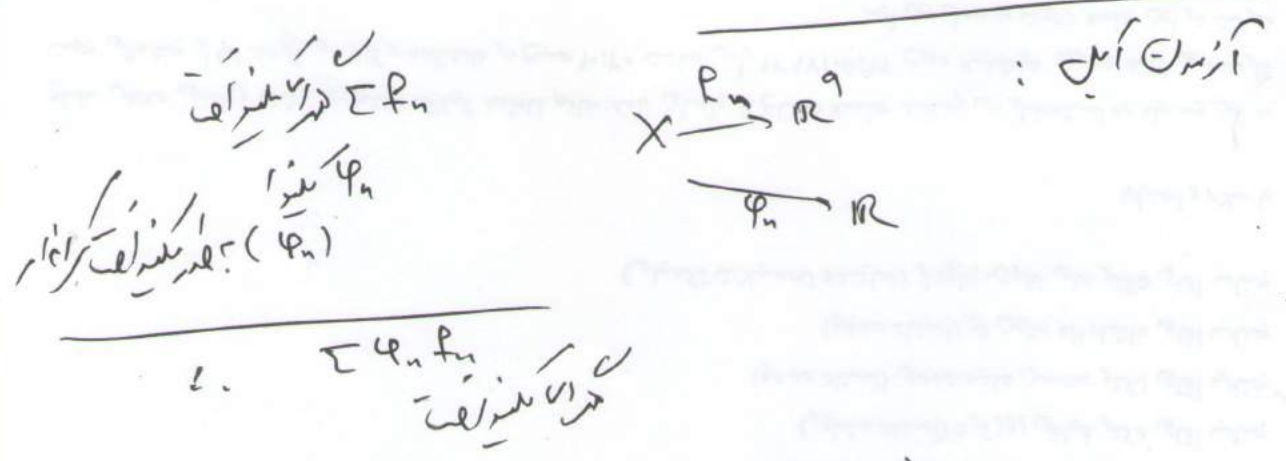 آزمون آبل :
X → ℝ^q  f_n
→ ℝ  φ_n
Σ f_n همگرای یکنواخت
φ_n یکنوا
(φ_n) به طور یکنواخت کراندار
∴ Σ φ_n f_n
همگرای یکنواخت